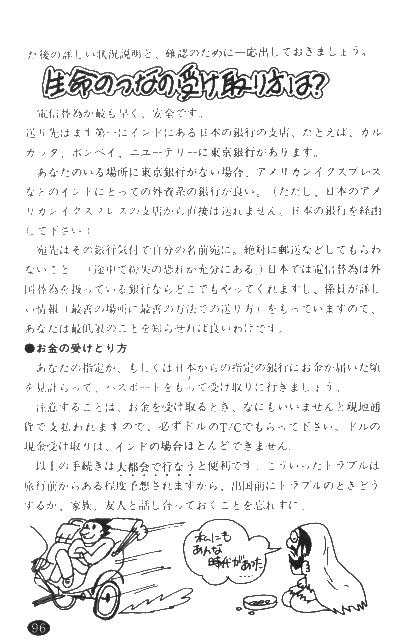 た後の詳しい状況説明と、確認のために一応出しておきましょう。
生命のつなの受け取り方は?
電信替為が最も早く、安全です。
送り先はまず第一にインドにある日本の銀行の支店、たとえば、カル
カッタ、ボンベイ、ニューデリーに東京銀行があります。
あなたのいる場所に東京銀行がない場合、アメリカンイクスプレス
などのインドにとっての外資系の銀行が良い。(ただし、日本のアメ
リカンイクスプレスの支店から直接は送れません。日本の銀行を経由
して下さい)
宛先はその銀行気付で自分の名前宛に。絶対に郵送などしてもらわ
ないこと。(途中で紛失の恐れが充分にある)日本では電信替為は外
国替為を扱っている銀行ならどこでもやってくれますし、係員が詳し
い情報(最善の場所に最善の方法での送り方)をもっていますので、
あなたは最低限のことを知らせれば良いわけです。
●お金の受けとり方
あなたの指定か、もしくは日本からの指定の銀行にお金が届いた頃
を見計らって、パスポートをもって受け取りに行きましょう。
注意することは、お金を受け取るとき、なにもいいませんと現地通
貨で支払われますので、必ずドルのT/Cでもらって下さい。ドルの
現金受け取りは、インドの場合ほとんどできません。
以上の手続きは大都会で行なうと便利です。こういったトラブルは
旅行前からある程度予想されますから、出国前にトラブルのときどう
するか、家族、友人と話し合っておくことを忘れずに。
私にも
あんな
時代があった…
96